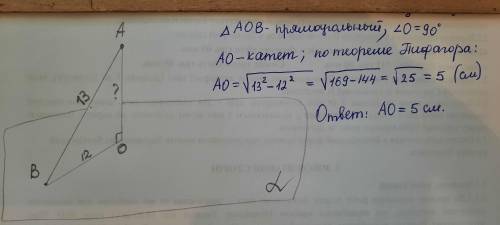 A
13
?
12
O
B
α
△ AOB - прямоугольный, ∠O = 90°
AO - катет; по теореме Пифагора:
AO = √13² - 12² = √169 - 144 = √25 = 5 (см)
Ответ: AO = 5 см.